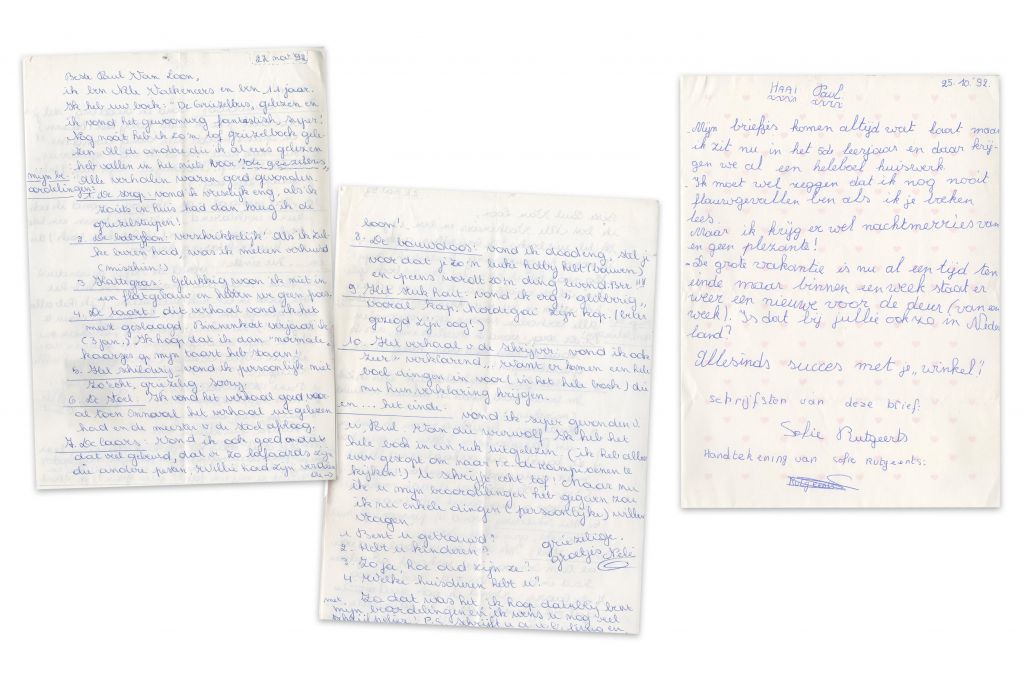 27 nov '92
Beste Paul Van Loon,
ik ben Nele Valkeneers en ben 11 jaar.
Ik heb uw boek: "De Griezelbus" gelezen en
ik vond het gewoonweg fantastisch super!
Nog nooit heb ik zo'n tof griezelboek gele-
zen. Al de andere die ik al eens gelezen
heb vallen in het niets voor "de griezelbus"
Alle verhalen waren goed gevonden.
mijn be-
oordelingen:
1. De : vond ik vreselijk eng, als ik
zoiets in huis had dan kreeg ik de
griezelstuipen!
2. De babyfoon: verschrikkelijk! Als ik zul-
ke horen had, was ik meteen verhuisd
(misschien!)
3. Klattigras: Gelukkig woon ik niet in
een flatgebouw en hebben we geen gras.
4. De taart: dit verhaal vond ik het
meest geslaagd. Binnenkort verjaar ik
(3 jan.) Ik hoop dat ik dan "normale"
kaarsjes op mijn taart heb staan!
5. Het : vond ik persoonlijk niet
zo'echt griezelig. Sorry.
6. De stoel: Ik vond het verhaal goed voor
al toen Onnoval het verhaal uitgelezen
had en de meester v. de stoel afvloog.
7. De laars: Vond ik ook goed omdat
dat veel gebeurd, dat er zo lafaards zijn
die andere pesten. Willie had zijn verdien
de →
loon!
8. De bouwdoos: vond ik doodeng, stel je
voor dat je zo'n leuke hobby hebt (bouwen)
en opeens wordt zo'n ding levend. Brr!!!
9. Het stuk hout: vond ik erg "glibberig",
vooral kap. Nordegat zijn kop. (beter
gezegd zijn oog!)
10. Het verhaal v. de schrijver: vond ik ook
zeer "verklarend", want er komen een hele
boel dingen in voor (in het hele boek) die
nu hun verklaring krijgen.
en ... het einde: vond ik super gevonden!
u, Paul Van die weerwolf! Ik heb het
hele boek in een ruk uitgelezen. (ik heb alleen
even gestopt om naar F.C. de Kampioenen te
kijken!) U schrijft echt tof! Maar nu
ik u mijn beoordelingen heb gegeven zou
ik nu enkele dingen (persoonlijke) willen
vragen
1. Bent u getrouwd?
2. Hebt u kinderen?
3. Zo ja, hoe oud zijn ze?
4. Welke huisdieren hebt u?
griezelige
groetjes Nele
Zo dat was het ik hoop dat u blij bent
met mijn beoordelingen en ik wens u nog veel
P.S. schrijft u a.u.b. terug en
25.10.'92.
HAAI Paul
- Mijn briefjes komen altijd wat laat maar
ik zit nu in het 5de leerjaar en daar krij-
gen we al een heleboel huiswerk.
- Ik moet wel zeggen dat ik nog nooit
flauwgevallen ben als ik je boeken
lees.
Maar ik krijg er wel nachtmerries van
en geen plezante!
- De grote vakantie is nu al een tijd ten
einde maar binnen een week staat er
weer een nieuwe voor de deur (van een
week). Is dat bij jullie ook zo in Neder
land?
Allesinds succes met je "winkel"!
schrijfster van deze brief:
Sofie Rutgeerts
Handtekening van Sofie Rutgeerts:
Rutgeerts